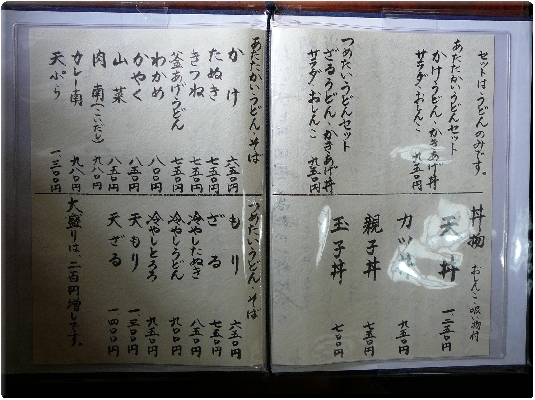 セットはうどんのみです。
あたたかいうどんセット
かけうどん・かきあげ丼
サラダ・おしんこ 九五〇円
つめたいうどんセット
ざるうどん・かきあげ丼
サラダ・おしんこ 九五〇円
丼物 おしんこ・吸い物付
天丼 一二五〇円
カツ丼 九五〇円
親子丼 七五〇円
玉子丼 七〇〇円
あたたかいうどん・そば
かけ 六五〇円
たぬき 七五〇円
きつね 七五〇円
釜あげうどん 七五〇円
わかめ 八〇〇円
かやく 八五〇円
山菜 八五〇円
肉南(こいだし) 九八〇円
カレー南 九八〇円
天ぷら 一三〇〇円
つめたいうどん・そば
もり 六五〇円
ざる 七五〇円
冷やしたぬき 八五〇円
冷やしうどん 九〇〇円
冷やしとろろ 九五〇円
天もり 一三〇〇円
天ざる 一四〇〇円
大盛りは、二百円増しです。